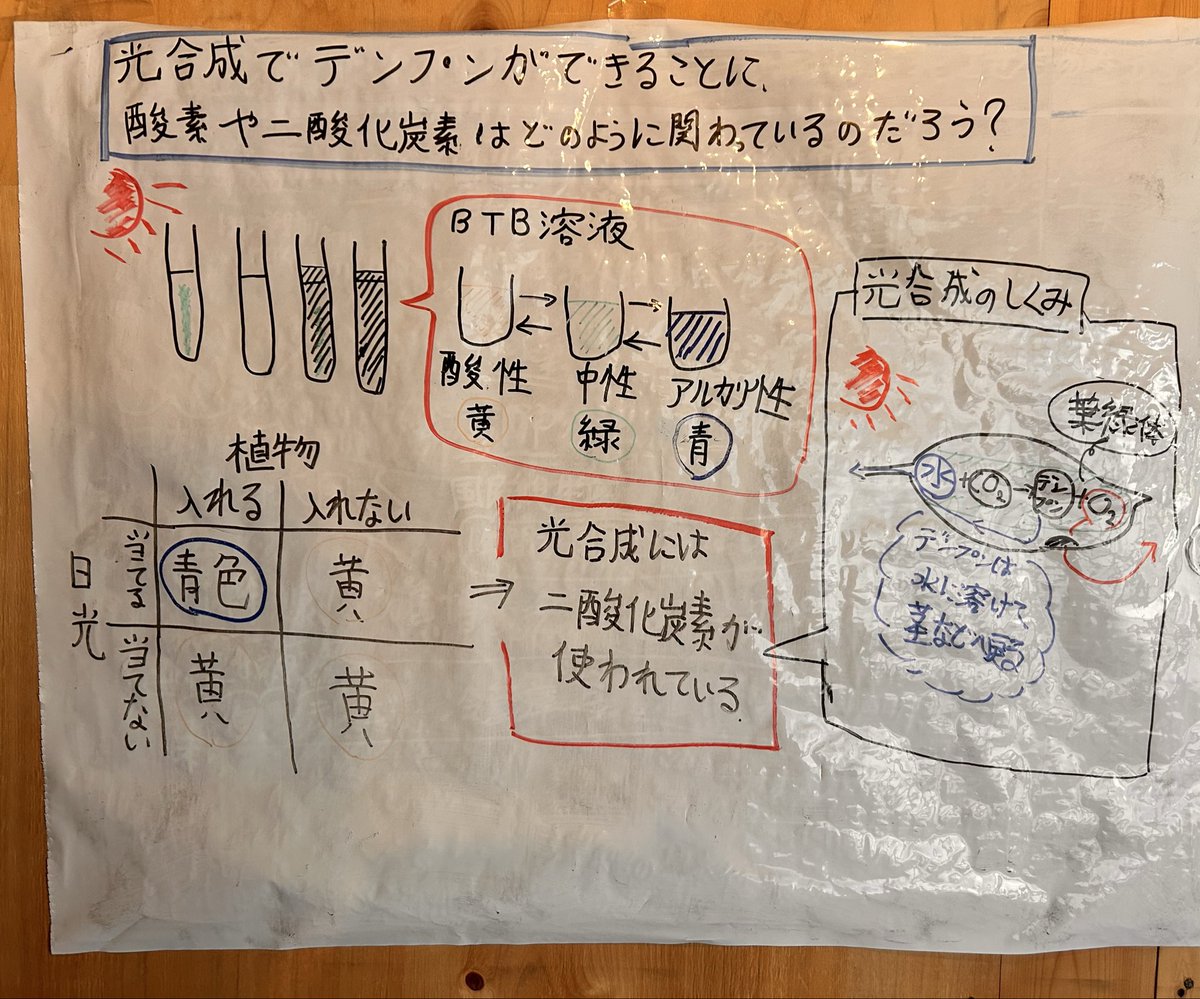 光合成でデンプンができることに、
酸素や二酸化炭素はどのように関わっているのだろう？
BTB溶液
酸性
中性
アルカリ性
黄
緑
青
植物
入れる
入れない
日光
当てる
青色
黄
当てない
黄
黄
光合成には
二酸化炭素が
使われている.
光合成のしくみ
葉緑体
水+CO₂→デンプン+O₂
デンプンは
水に溶けて
茎などへ